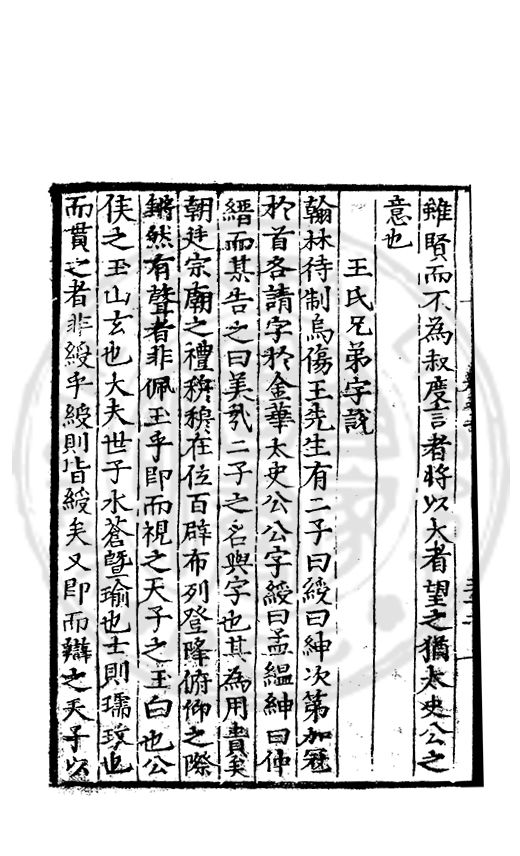 雖賢而不為叔度言者將以大者望之猶太史公之
意也
王氏兄弟字說
翰林待制烏傷王先生有二子曰綬曰紳次第加冠
於首各請字於金華太史公公字綬曰孟縕紳曰仲
縉而某告之曰美哉二子之名與字也其為用貴矣
朝廷宗廟之禮穆穆在位百辟布列登降俯仰之際
鏘然有聲者非佩玉乎即而視之天子之玉白也公
侯之玉山玄也大夫世子水蒼曁瑜也士則瓀玟也
而貫之者非綬乎綬則皆綬矣又即而辯之天子以